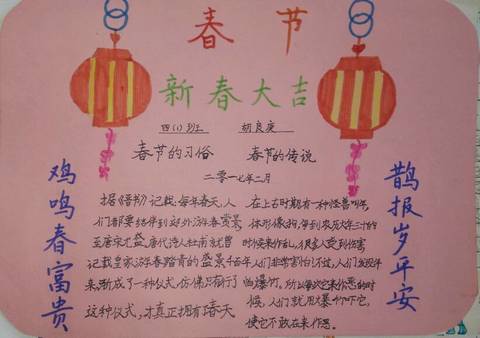 春节
新春大吉
四(1)班 胡良庚
春节的习俗 春节的传说
二〇一七年二月
鸡鸣春富贵
据《晋书》记载:每年春天,人
们都要结伴到郊外游春赏景
至唐宋尤盛。唐代诗人杜甫就曾
记载皇家游春踏青的盛景千百年
来形成了一种仪式,仿佛只有行了
这种仪式,才真正拥有春天
在上古时期有一种怪兽叫年,
体形像狗,每到农历大年三十的
时候来作乱,很多人受到伤害
人们非常害怕不过,人们发现年
怕爆竹。所以每次它来作恶的时
候,人们就用爆竹吓它,
使它不敢在来作恶。
鹊报岁平安